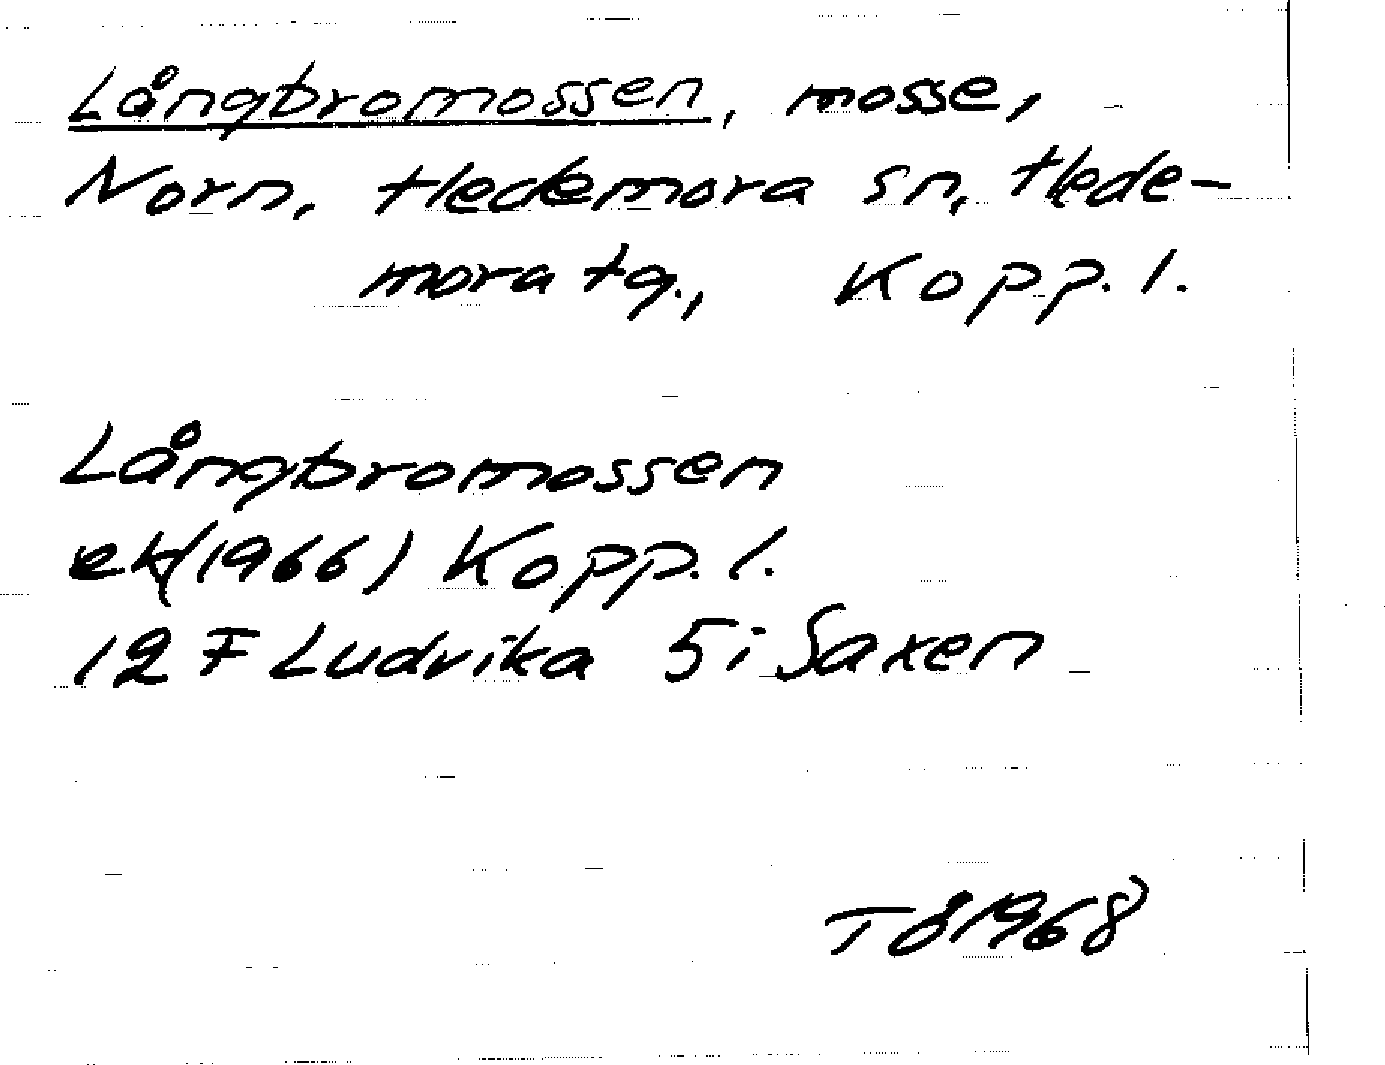 Långbromossen, mosse,
Norn, Hedemora sn, Hede-
mora tg., Kopp. l.
Långbromossen
ek (1966) Kopp. l.
12 F Ludvika 5i Saxen
TÖ 1968